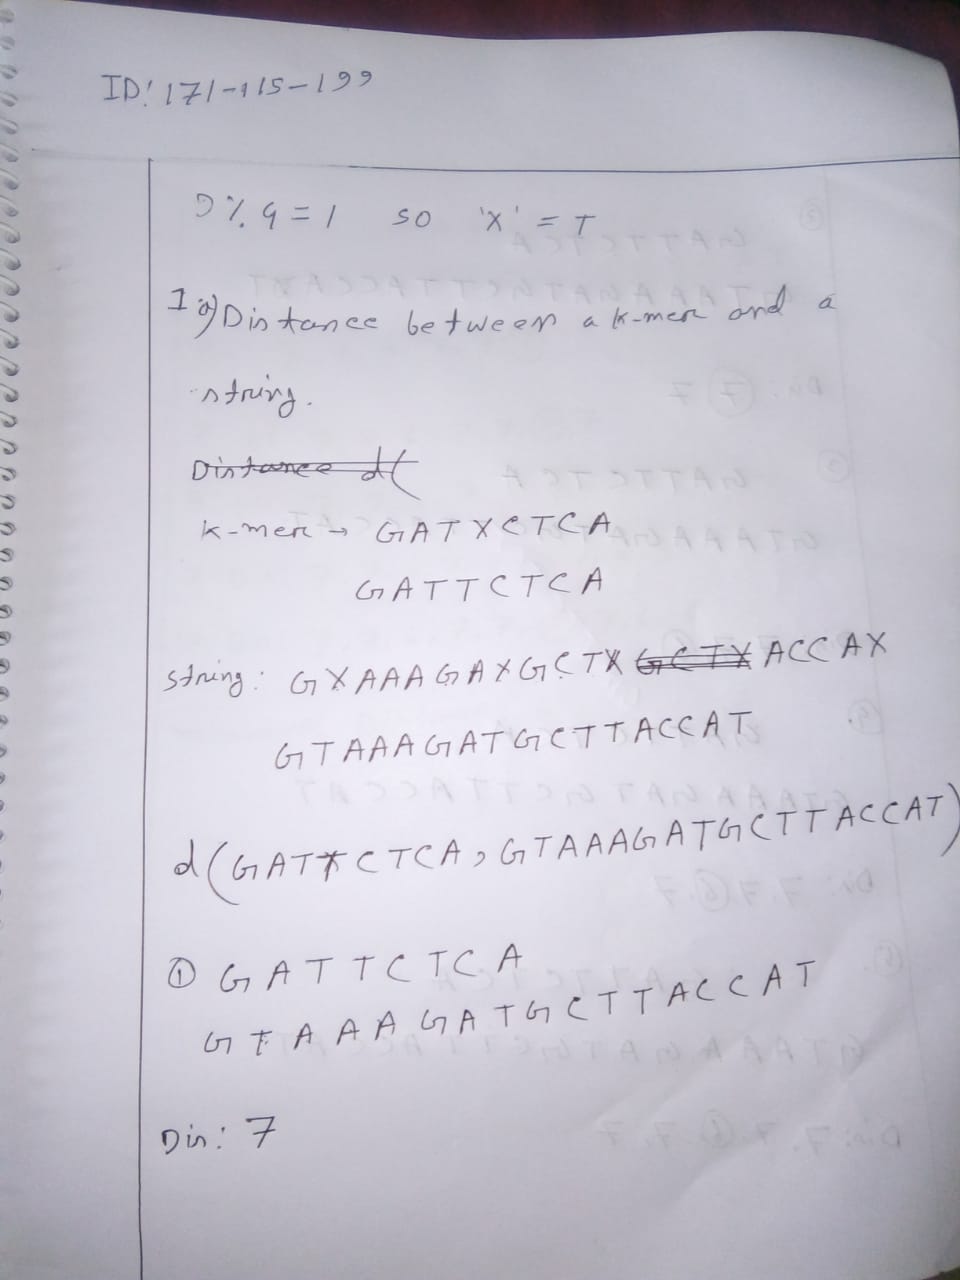 ID: 171-115-199
9 % 4 = 1 so 'X' = T
1 a) Distance between a k-mer and a
string.
Distance d(
k-mer → GATXCTCA
GATTCTCA
string: GXAAAGAXGCTX GCTX ACCAX
GTAAAGATGCTTACCAT
d(GATTCTCA, GTAAAGATGCTTACCAT)
① GATTCTCA
GTAAAGATGCTTACCAT
Dis: 7